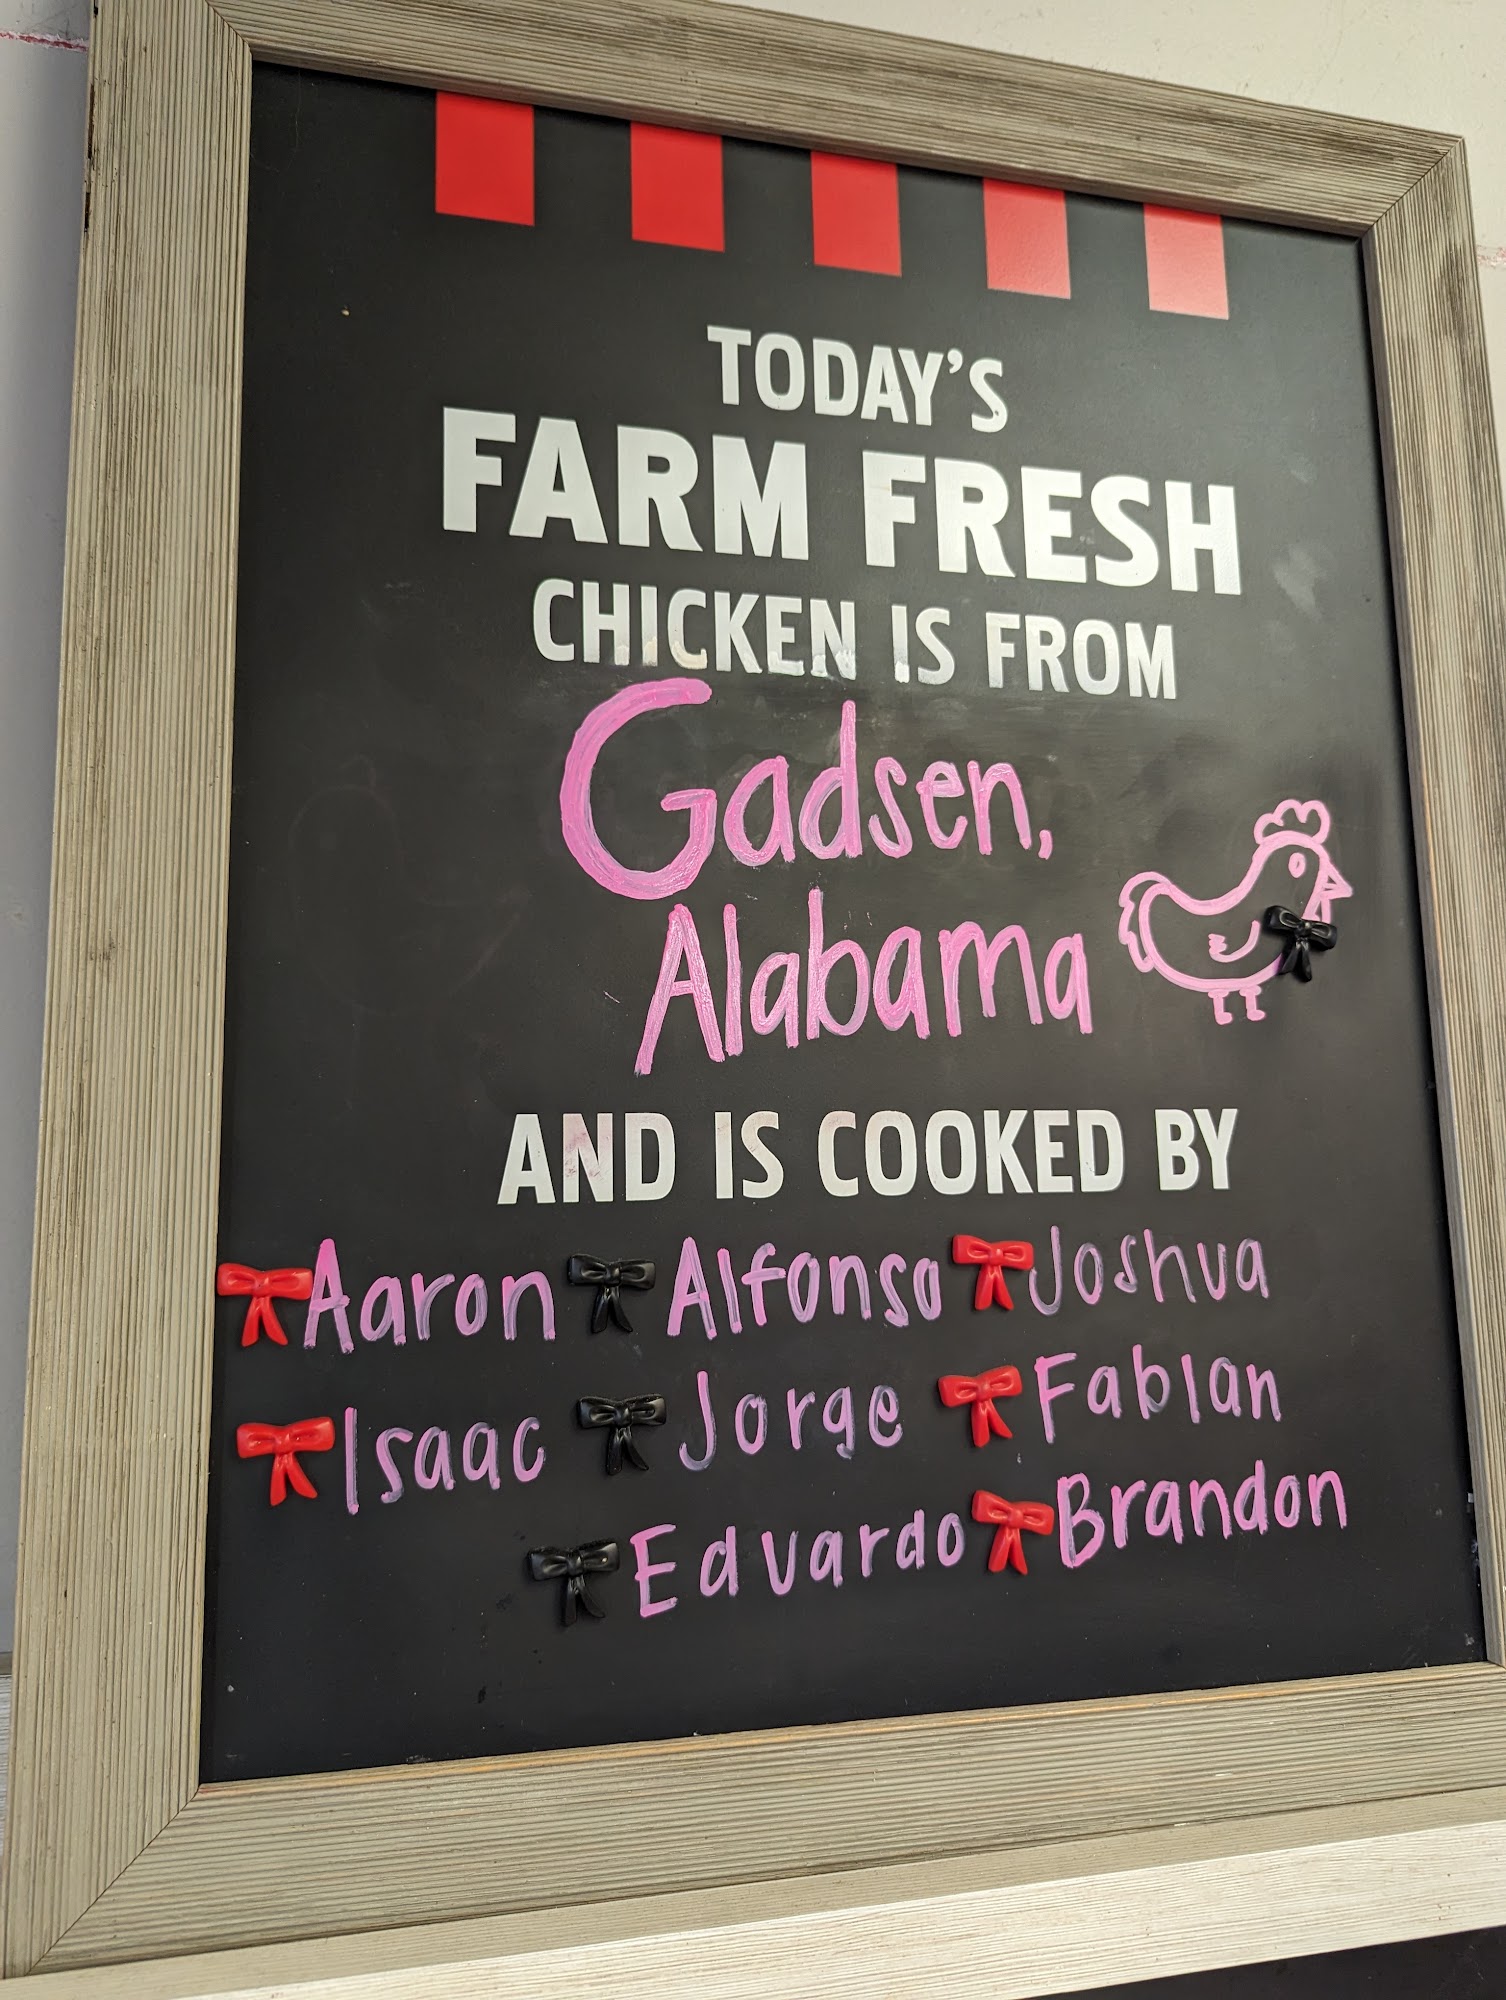 TODAY'S
FARM FRESH
CHICKEN IS FROM
Gadsen,
Alabama
AND IS COOKED BY
Aaron Alfonso Joshua
Isaac Jorge Fabian
Eduardo Brandon